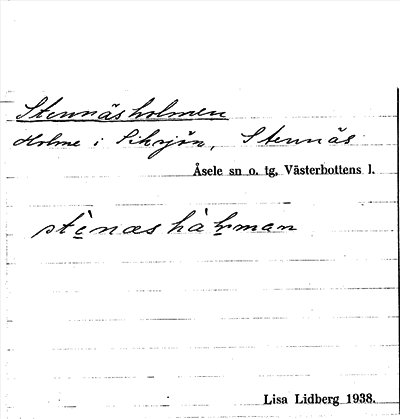 Stennäsholmen
Holme i Siksjön, Stennäs
Åsele sn o. tg, Västerbottens l.
stènæshàḷman
Lisa Lidberg 1938.